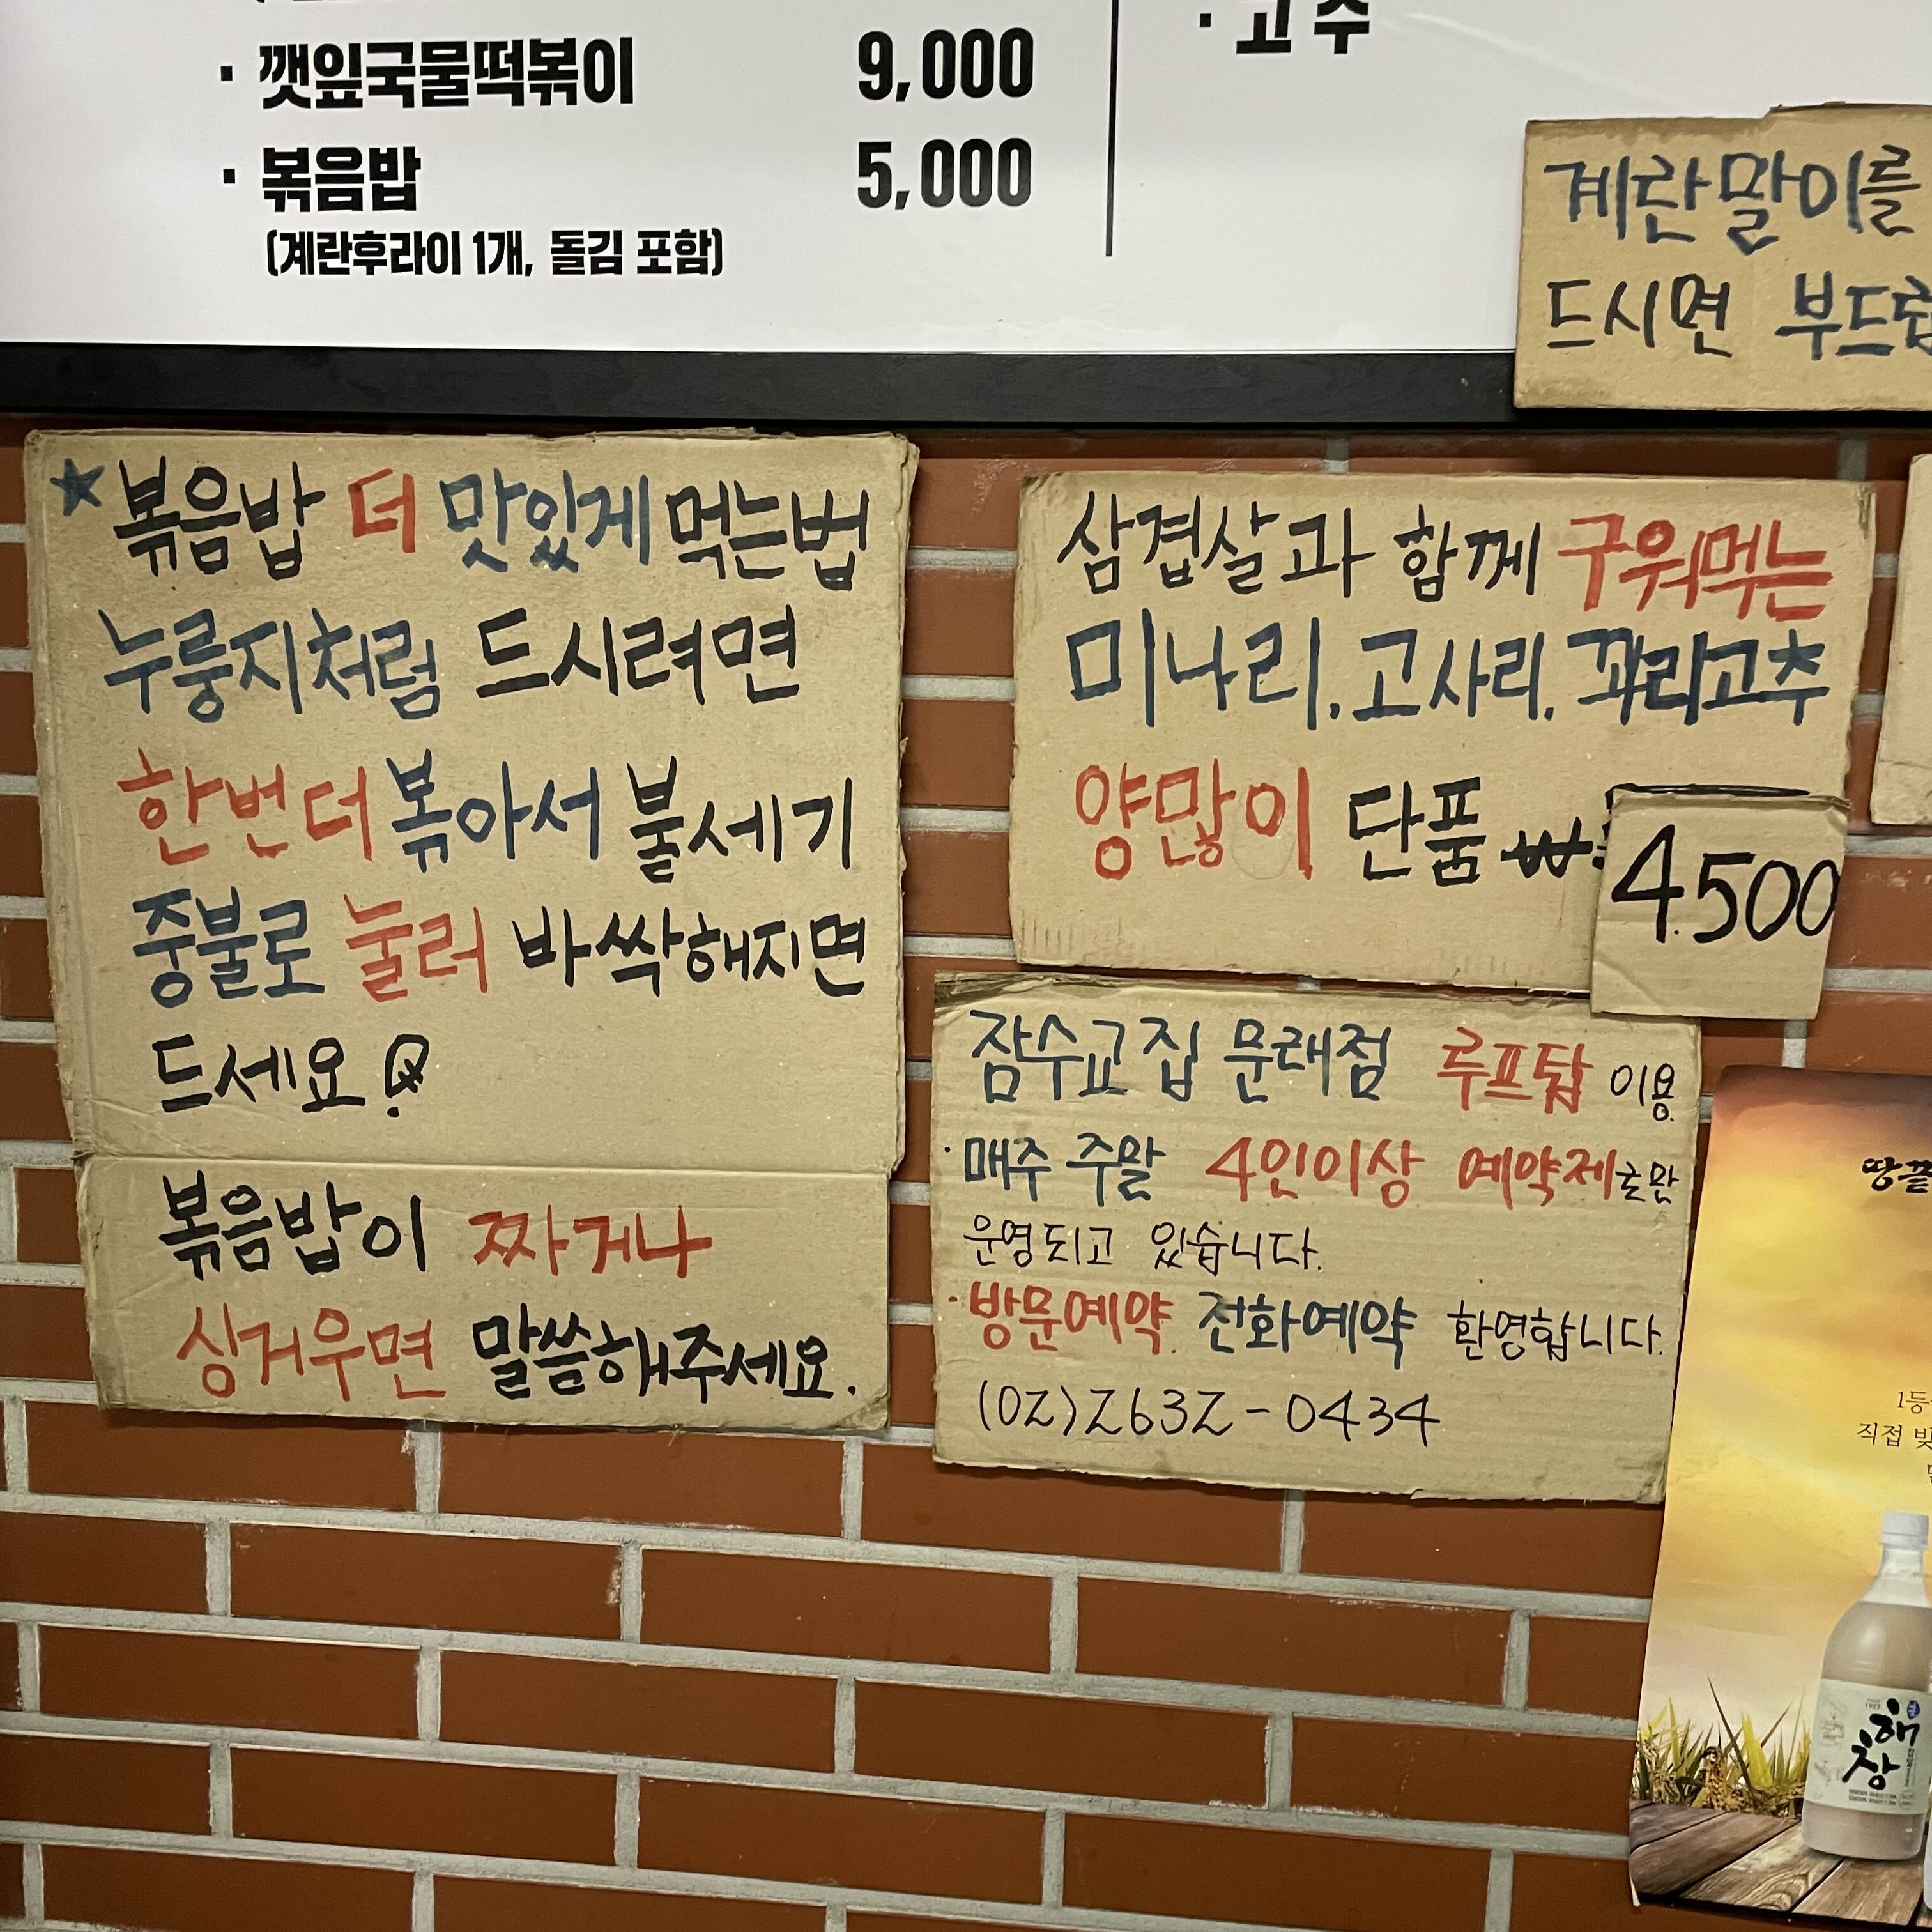 · 깻잎국물떡볶이 9,000
· 볶음밥 5,000
(계란후라이 1개, 돌김 포함)
· 고추
계란말이를
드시면
★볶음밥 더 맛있게 먹는법
누룽지처럼 드시려면
한번더 볶아서 불세기
중불로 눌러 바싹해지면
드세요
볶음밥이 짜거나
싱거우면 말씀해주세요.
삼겹살과 함께 구워먹는
미나리, 고사리, 꽈리고추
양많이 단품 ₩
4.500
잠수교집 문래점 루프탑 이용
· 매주 주말 4인이상 예약제로만
운영되고 있습니다.
· 방문예약, 전화예약 환영합니다.
(02)2632-0434
땅끝
1등
직접
해창